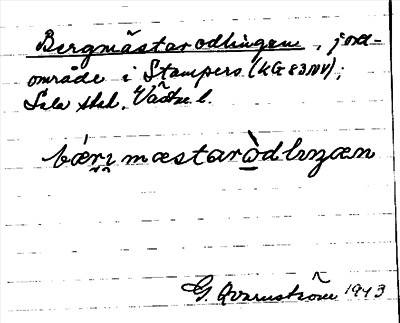 Bergmästarodlingen, jord-
område i Stampers (KG 83 NV);
Sala skd. Västm l.
bǽri̭mæstaròdlıŋæn
G. Qvarnström 1943